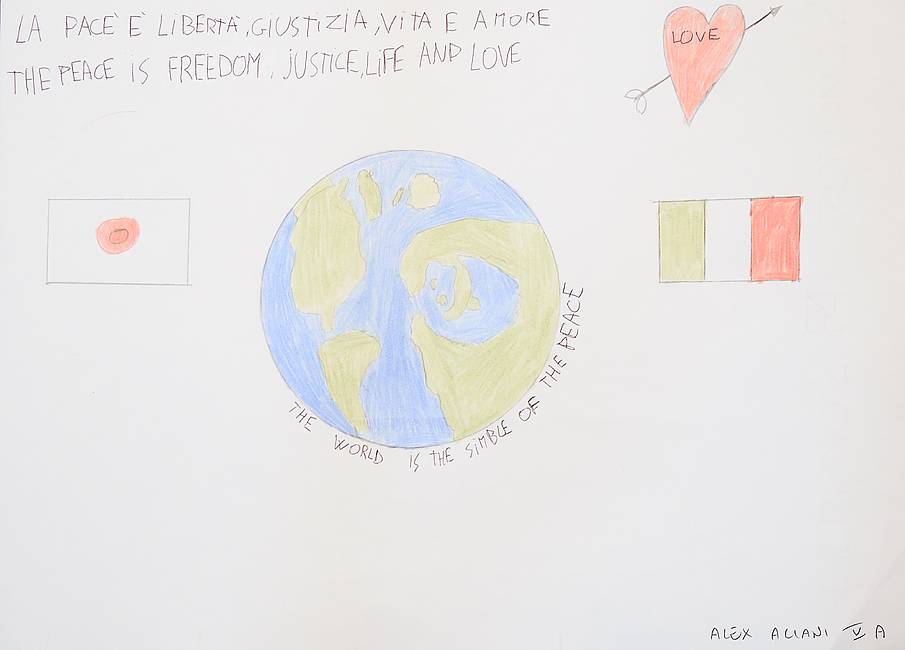 LA PACE È LIBERTÀ, GIUSTIZIA, VITA E AMORE
THE PEACE IS FREEDOM, JUSTICE, LIFE AND LOVE
LOVE
THE WORLD IS THE SIMBLE OF THE PEACE
ALEX ALLANI V A